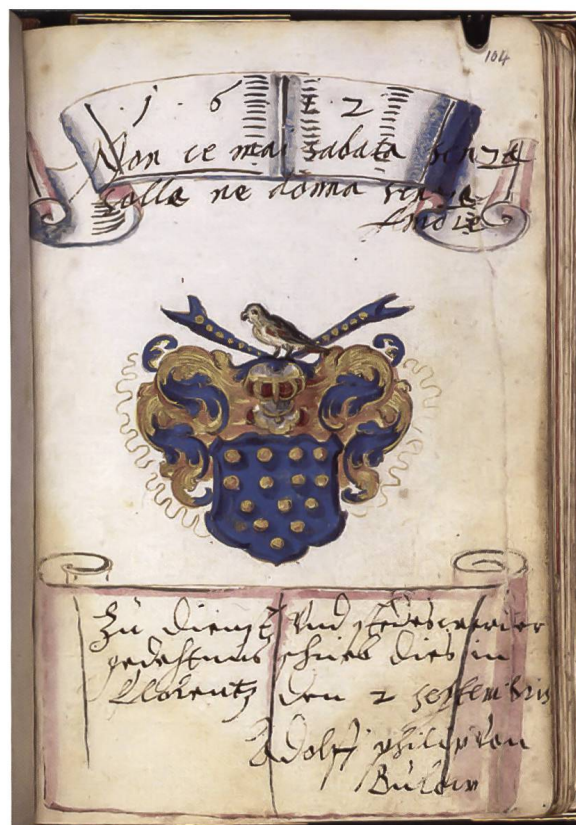 104
1 6 1 2
Non ce mai sabata senza
solle ne donna senza
Amore
Zu dienst Und stedeswerender
gedechtnus schrieb dies in
Florentz den 2 septembris
Adolff philip von
Bülow